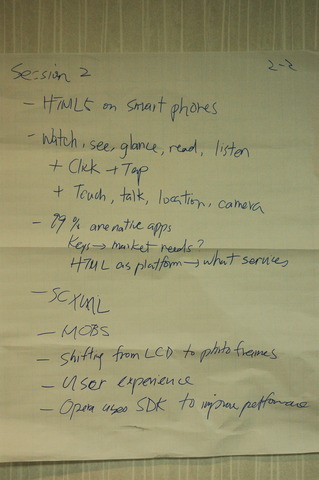 Session 2
2-2
- HTML5 on smart phones
- Watch, see, glance, read, listen
+ Click → Tap
+ Touch, talk, location, camera
- 99% are native apps
Keys → market needs?
HTML as platform → what services
- SCXML
- MOBS
- Shifting from LCD to photo frames
- User experience
- Opera uses SDK to improve performance